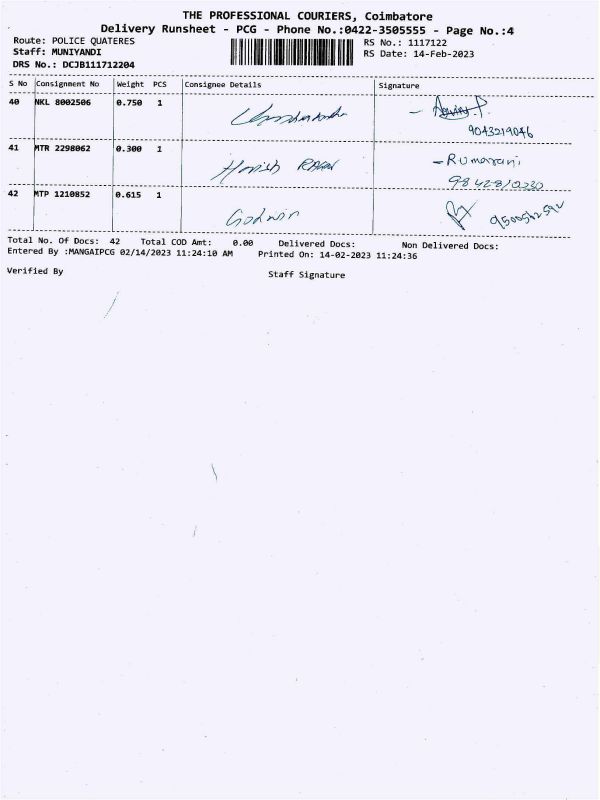 THE PROFESSIONAL COURIERS, Coimbatore
Delivery Runsheet - PCG - Phone No.:0422-3505555 - Page No.:4
Route: POLICE QUATERES
Staff: MUNIYANDI
DRS No.: DCJB111712204
RS No.: 1117122
RS Date: 14-Feb-2023
S No Consignment No Weight PCS Consignee Details Signature
40 NKL 8002506 0.750 1
9043219046
41 MTR 2298062 0.300 1 Harish
42 MTP 1210852 0.615 1 Godwin
Total No. Of Docs: 42 Total COD Amt: 0.00 Delivered Docs: Non Delivered Docs:
Entered By :MANGAIPCG 02/14/2023 11:24:10 AM Printed On: 14-02-2023 11:24:36
Verified By Staff Signature